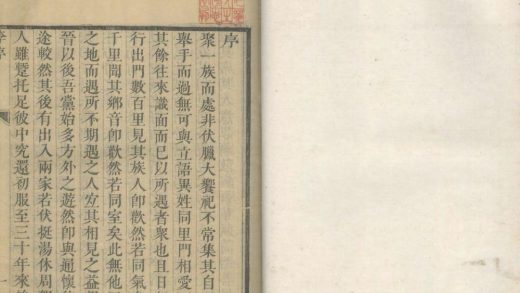 序
聚一族而處非伏臘大饗祀不常集其自
舉手而過無可與立語異姓同里門相愛
其餘往來識面而已以所遇者衆也且日
行出門數百里見其族人卽歡然若同氣
千里聞其鄉音卽歡然若同室矣此無他
之地而遇所不期遇之人宜其相見之益
晉以後吾黨始多方外之遊然卽與通懷
途較然其後有出入兩家若伏挺湯休周
人雖蹔托足彼中究還初服至三十年來
序
一